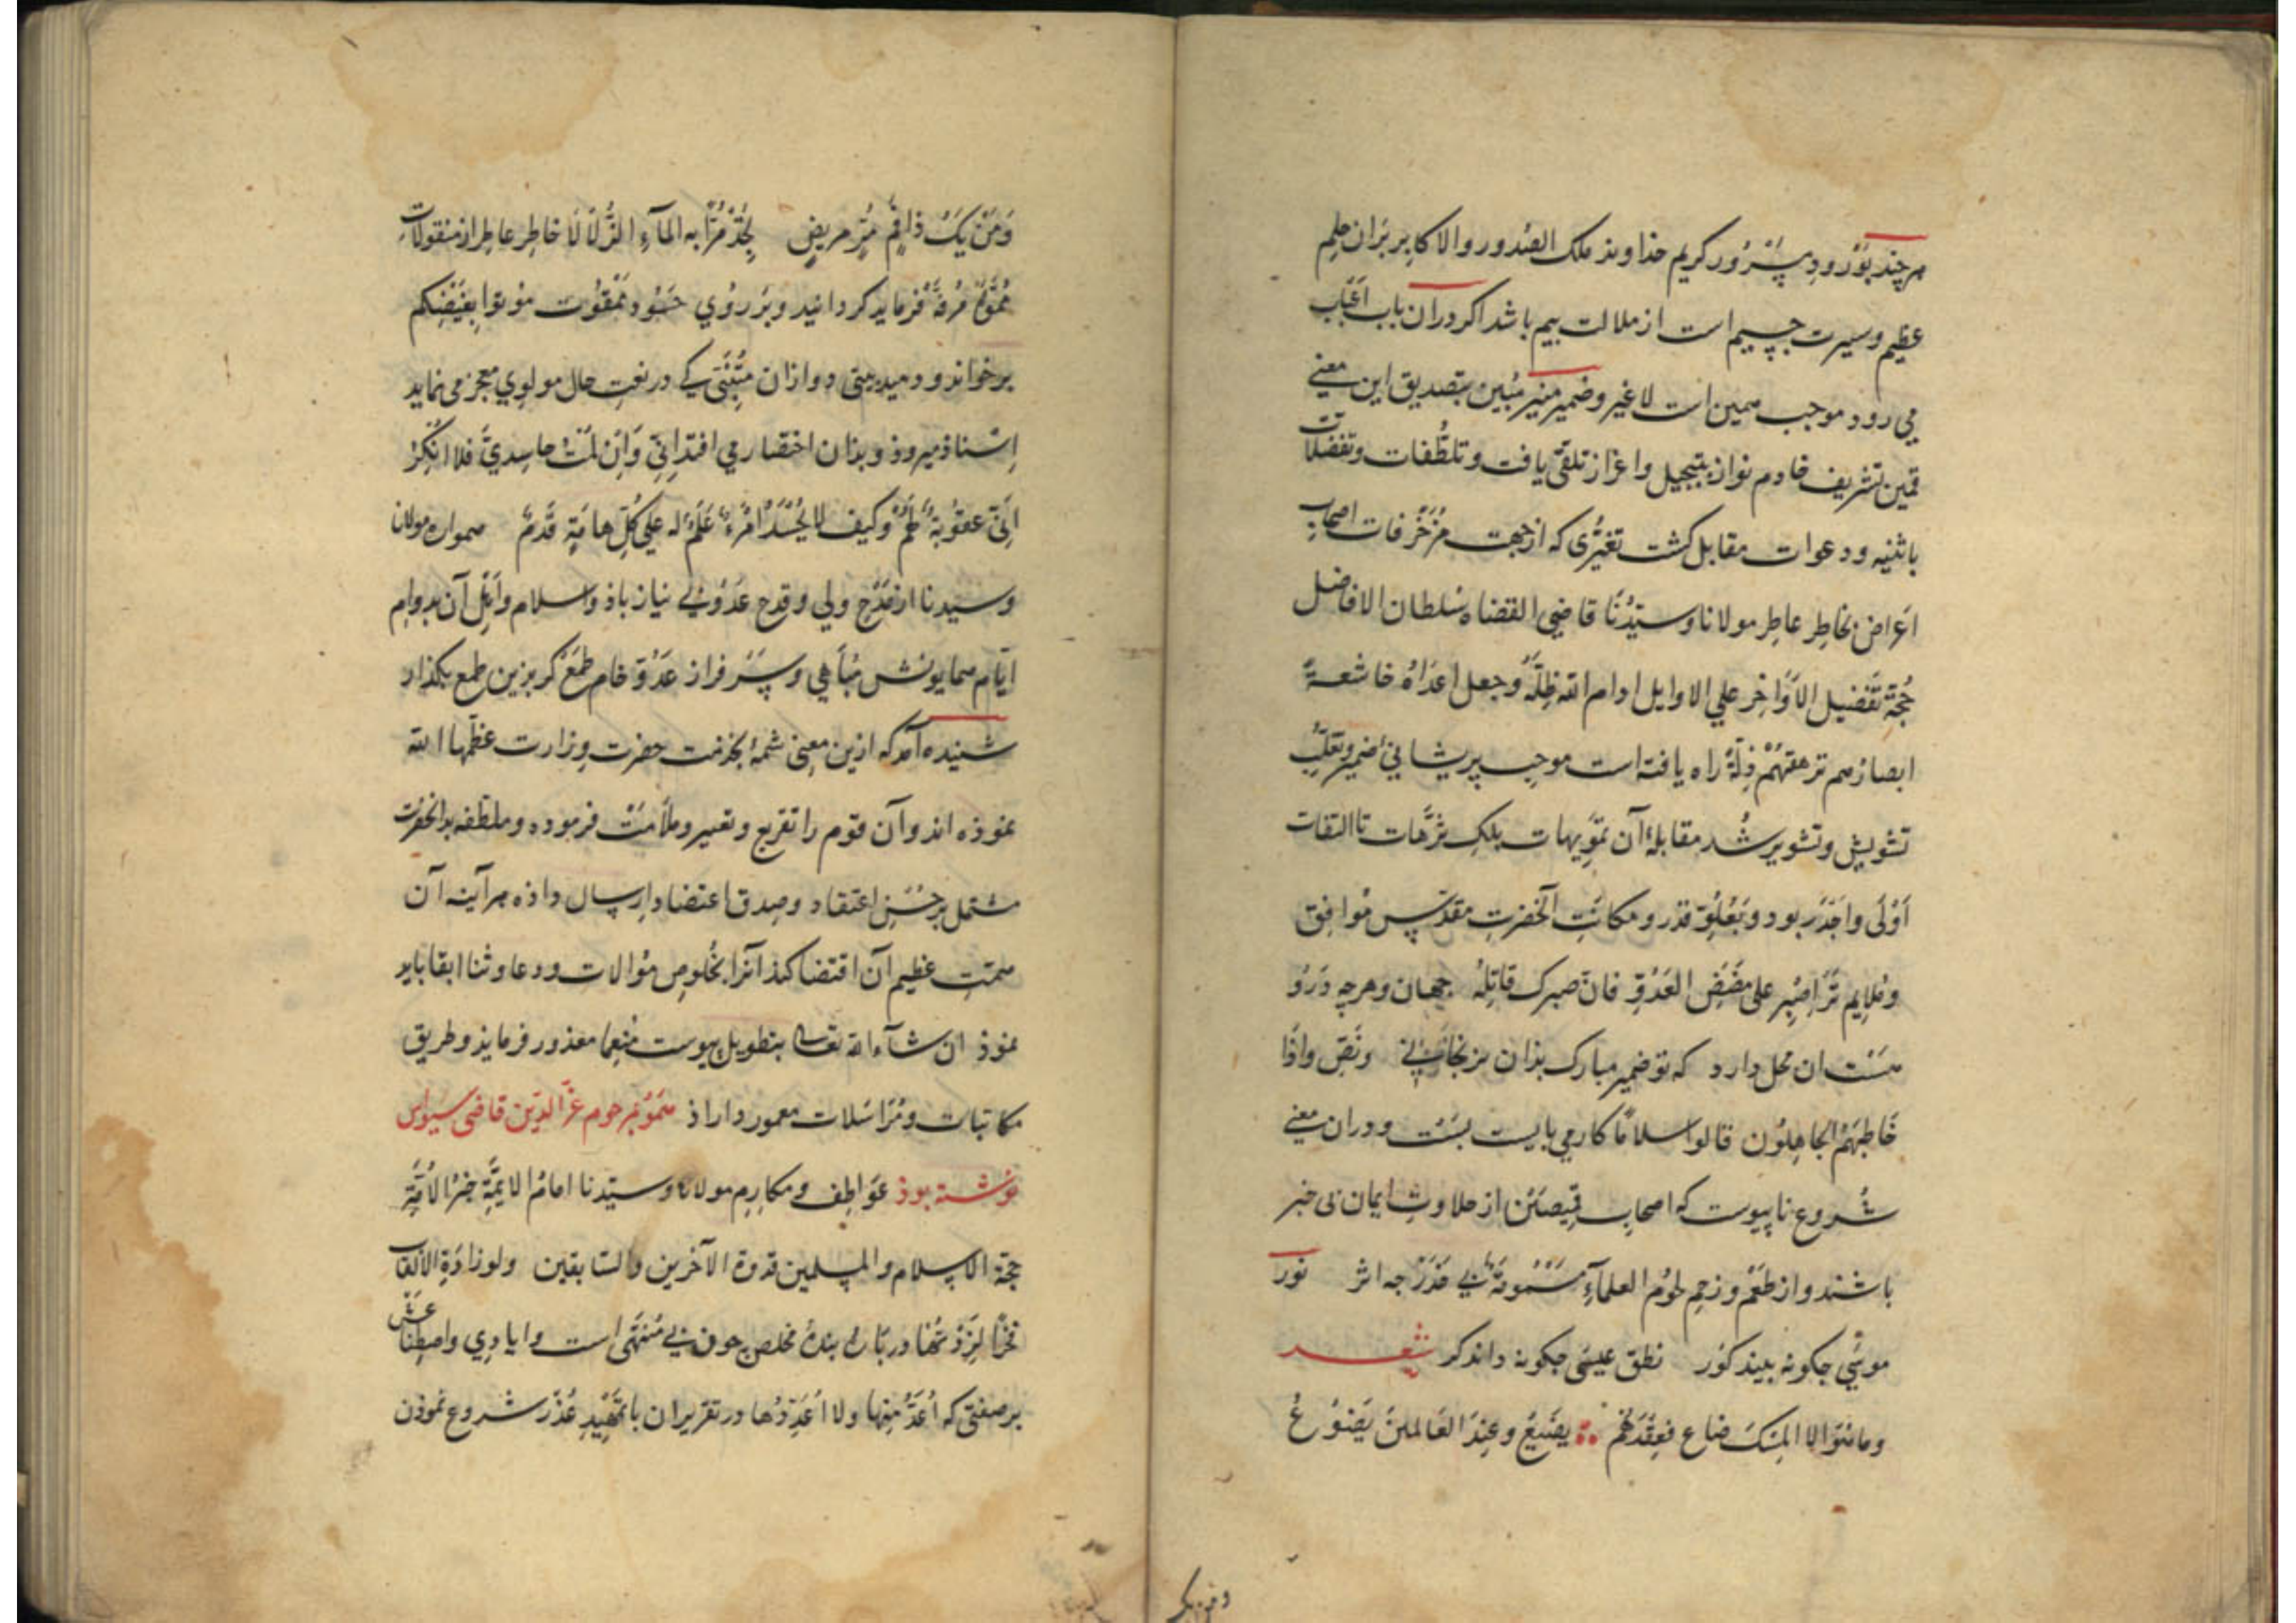 هر چند بورود سرور کریم خداوند ملک الصدور والاکابر بران حلم
عظیم و سیرت جسیم است از ملالت بیم باشد اکر دران باب اغباب
می رود موجب همین است لاغیر و ضمیر منیر مبین بتصدیق این معنی
قمین تشریف خادم نواز بتبجیل و اعزاز تلقی یافت و تلطّفات و تفضلات
باثنیه و دعوات مقابل کشت تغیّری که از جهت مُزَخْرفات اصحاب
اغراض بخاطر عاطر مولانا وسیّدُنَا قاضی القضاه سُلطان الافاضل
حُجّة تَفْضیل الاَوَاخِر علی الاوایل ادام الله ظِلّهُ وجعل اعداهُ خاشعةً
ابصارهم ترهقهُمْ ذِلّةُ راه یافته است موجب پریشانی ضمیر و تقلّب
تشویش و تشویر شُد مقابلۀ آن تمویهات بلک تُرّهات تا التفات
اَوْلَی و اَجْدَر بود و بَعُلُوّ قدر و مکانتِ آنحضرتِ مقدّس مُوافِق
و مُلایم تر اِصْبِر علی مَضَضِ العَدُوّ فانّ صبرک قاتِلُهْ جهان و هرچه دَرُو
هست ان محل دارد که تو ضمیر مبارک بذان برنجانی و نَصِّ واِذَا
خَاطبَهُمُ الجاهِلُون قالوا سلامًا کار می بایست بست و دران معنی
شُروع ناپیوست که اصحاب قمیصَیْن از حلاوتِ ایمان بی خبر
باشند و از طعْم و زحم لحُوم العلمآءِ مَسْمُومَةٌ بی حَذَر چه اثر نور
موسَی چکونه بیند کور نطق عیسَی چکونه داند کر شعر
وما انتَ الا المِسْکَ ضاع فعِنْدَهُم یَضیعُ و عِندَ العَالمینَ یَضُوْعُ
وَمَنْ یَکُ ذا فَمٍ مُرٍّ مریضٍ یجِدْ مُرًّا به المآءَ الزُّلَالَا خاطر عاطر از منقولات
مُمَوَّه مرفّه فرماید کردانید و بَر رُوي حسُود ممقُوت مُوتوا بِغَیْضِکم
برخواند و دمید بیتی دو ازان متنَبّی کی در نعتِ حال مولوي معجز می نماید
اِسْتناذ میروذ و بذان اختصار می افتد اِنِّی وَاِن لُمْتُ حاسِديَّ فلا اُنْکِرُ
اَنِّی عقوُبةٌ لَهُمُ وکیف لا یُحْسَدُ امْرُءٌ عَلَمٌ له علی کُلّ هامَةٍ قَدَمُ همواره مولانا
و سیّدنا از مَدْحِ ولی و قدح عَدُوْ بی نیاز باذ والسلام واَهْل آن بدوام
ایّام همایونش مُبَاهی و سَرفراز عَدُوّ خام طمَعْ کر بزین طمع بکذار
شنیده آمد که ازین معنی شمّۀ بخدمت حضرت وزارت عظّمها الله
نموذه اند و آن قوم را تقریع و تعییر و ملاَمَت فرموده و ملطّفه بدانحضرت
مشتمل بر حُسْنِ اعتقاد و صِدق اعتضاد اِرسال داذه هرآینه آن
همتِ عظیم آن اقتضا کند آنرا بخُلوص مُوالات و دعا و ثنا ابقا باید
نموذ ان شآء الله تعالی بتطویل پیوست مُنعِما معذور فرمایذ و طریق
مکاتبات و مُرَاسَلات معمور داراذ هموُ بمرحوم عزّ الدّین قاضی سیواس
نوشته بوذ عَوَاطِف و مکارِم مولانا و سیّدنا امامُ الایمّةِ حِبْرُ الاُمّةِ
حجّة الاسلام والمسلمین قدوة الآخرین والسّابقین ولو زادَتِ الالقاب
فخْرًا لزِدْتُها در باره بنده مخلص چون بی مُنْتَهَی است و ایادِي و اصطِناعَش
بر صفتی که اُعَدُّ مِنها ولا اُعَدِّدُها در تقریر ان با تمهِیْدِ عُذْر شروع نموذن